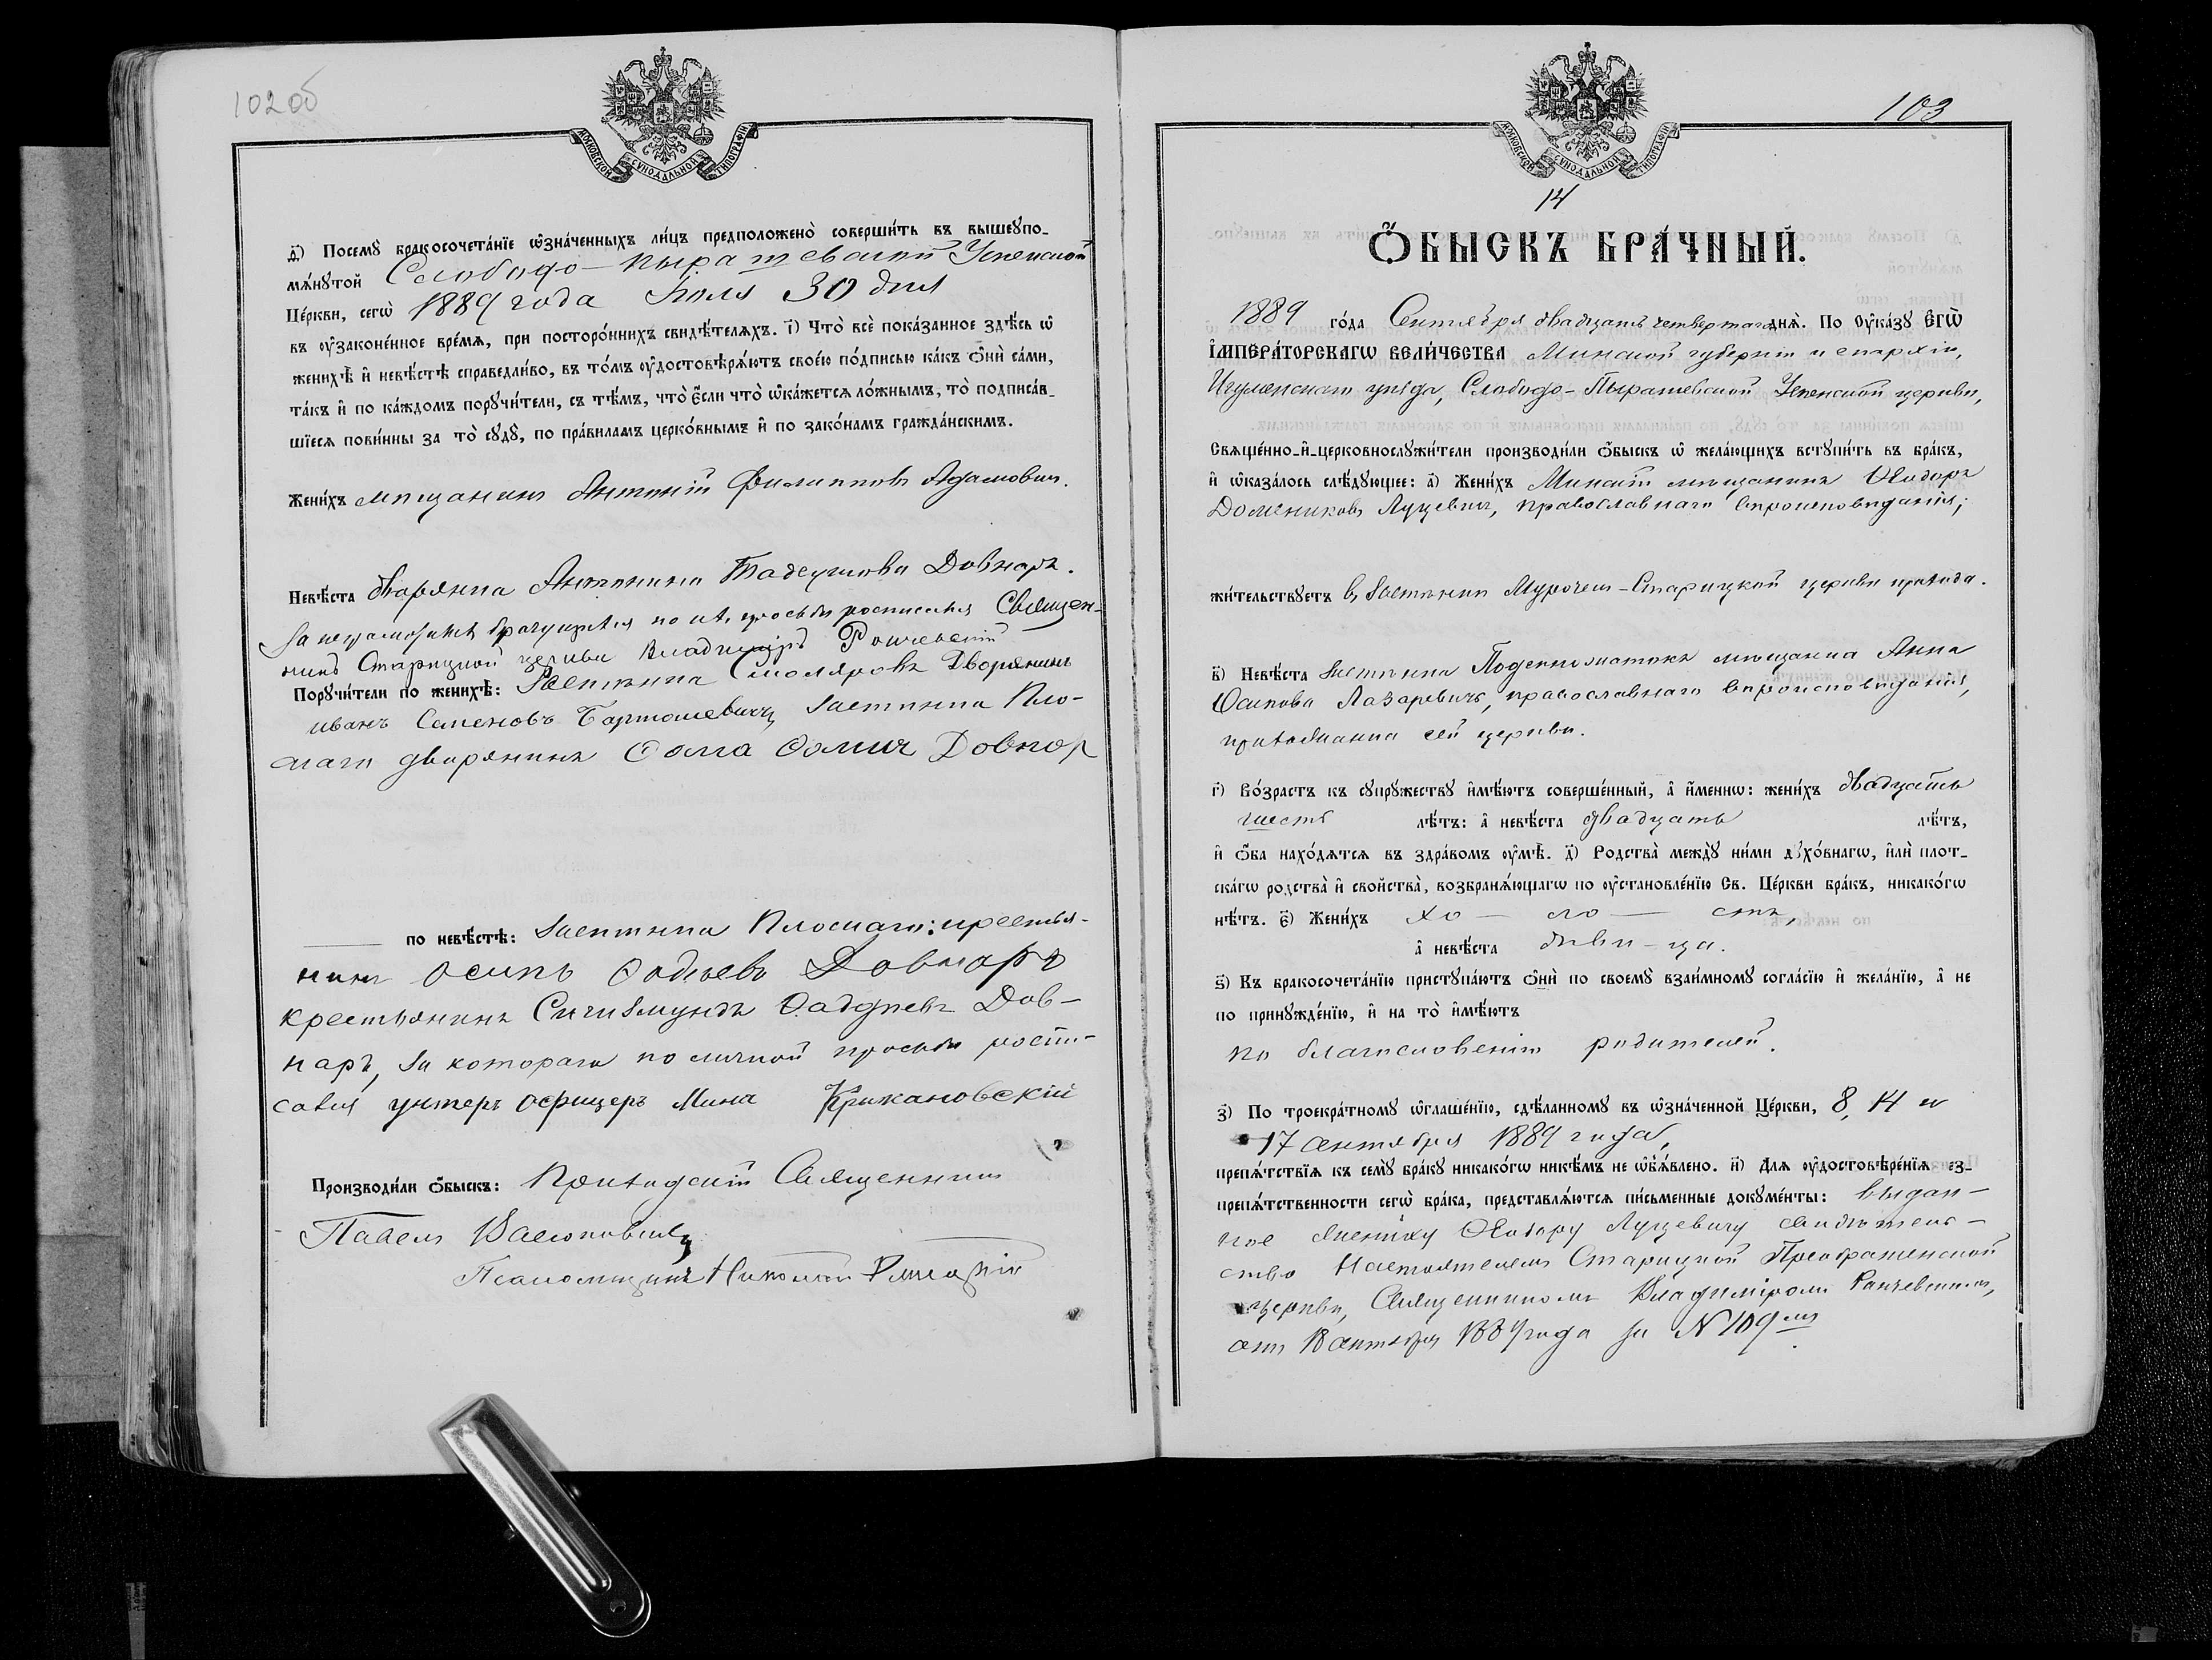 102 об
МОСКОВСКОЙ СУНОДАЛЬНОЙ ТИПОГРАФІИ
д҃) Посемꙋ̀ бракосочета́нїе ѡ҆зна́ченныхъ ли́цъ предположено̀ соверши́ть въ вышеꙋпо-
мѧ́нꙋтой Слободо-Пырашевской Успенской
Це́ркви, сегѡ̀ 1889 года Іюля 30 дня
въ ᲂу҆законе́нное вре́мѧ, при посторо́ннихъ свидѣ́телѧхъ. і҃) Что̀ всѐ пока́занное здѣ́сь ѡ҆
женихѣ̀ и҆ невѣ́стѣ справедли́во, въ то́мъ ᲂу҆достовѣрѧ́ютъ свое́ю по́дписью ка́къ ѻ҆нѝ са́ми,
та́къ и҆ по ка́ждомъ порꙋчи́тели, съ тѣ́мъ, что̀ є҆́сли что̀ ѡ҆ка́жетсѧ ло́жнымъ, то̀ подписа́в-
шїесѧ пови́нны за то̀ сꙋдꙋ̀, по пра́виламъ церко́внымъ и҆ по зако́намъ гражда́нскимъ.
Жени́хъ мѣщанинъ Антоній Филипповъ Адамович.
Невѣ́ста дворянка Антонина Тадеушова Довнаръ.
За неграмотныхъ брачущихся по ихъ просьбѣ росписался Священ-
никъ Старицкой церкви Владиміръ
Порꙋчи́тели по женихѣ̀: Застѣнка Смоляровъ Дворянинъ
иванъ Семеновъ Бартошевичъ, Застѣнка Пло-
скаго дворянинъ Ѳома Ѳомич Довнор
по невѣ́стѣ: Застѣнка Плоскаго: крестья-
нинъ осипъ Довнаръ
крестьянинъ Сигизмундъ Ѳаддѣевъ Дов-
наръ, за котораго по личной просьбѣ роспи-
сался унтеръ офицеръ Мина Крыжановскій
Производи́ли ѻ҆́быскъ: Приходскій Священникъ
Павелъ
Псаломщикъ Николай
103
МОСКОВСКОЙ СУНОДАЛЬНОЙ ТИПОГРАФІИ
14
Ѻ҆́БЫСКЪ БРА́ЧНЫЙ.
1889 го́да Сентября двадцать четвертаго днѧ̀. По ᲂу҆ка́зꙋ Є҆гѡ̀
І҆мпера́торскагѡ вели́чества Минской губерніи и епархіи,
Игуменскаго уѣзда, Слободо-Пырашевской Успенской церкви,
Свѧще́нно-и҆-церковнослꙋжи́тели производи́ли ѻ҆́быскъ ѡ҆ жела́ющихъ встꙋпи́ть въ бра́къ,
и҆ ѡ҆каза́лось слѣ́дꙋющее: а҃) Жени́хъ Минскій мѣщанинъ Ѳеодоръ
Домениковъ Луцевичъ, православнаго вѣроисповѣданія;
жи́тельствꙋетъ въ Застѣнкѣ -Старицкой церкви прихода.
в҃) Невѣ́ста Застѣнка мѣщанка Анна
Осипова Лазаревичъ, православнаго вѣроисповѣданія,
прихожанка сей церкви.
г҃) Во́зрастъ къ сꙋпрꙋ́жествꙋ и҆мѣ́ютъ соверше́нный, а҆ и҆́меннѡ: жени́хъ двадцать
шесть лѣ́тъ: а҆ невѣ́ста двадцать лѣ́тъ,
и҆ ѻ҆́ба нахо́дѧтсѧ въ здра́вомъ ᲂу҆мѣ̀. д҃) Родства̀ междꙋ̀ ни́ми дꙋхо́внагѡ, и҆лѝ плот-
ска́гѡ родства̀ и҆ свойства̀, возбранѧ́ющагѡ по ᲂу҆становле́нїю Св. Це́ркви бра́къ, никако́гѡ
нѣ́тъ. є҃) Жени́хъ хо — ло — стъ,
а҆ невѣ́ста дѣви-ца.
ѕ҃) Къ бракосочета́нїю пристꙋпа́ютъ ѻ҆нѝ по своемꙋ̀ взаи́мномꙋ согла́сїю и҆ жела́нїю, а҆ не
по принꙋжде́нїю, и҆ на то̀ и҆мѣ́ютъ
по благословенію родителей.
з҃) По троекра́тномꙋ ѡ҆глаше́нїю, сдѣ́ланномꙋ въ ѡ҆зна́ченной Це́ркви, 8, 14 и
17 сентября 1889 года,
препѧ́тствїѧ къ семꙋ̀ бра́кꙋ никако́гѡ никѣ́мъ не ѡ҆б̾ѧ́влено. и҃) Для ᲂу҆достовѣре́нїѧ без-
препѧ́тственности сегѡ̀ бра́ка, представлѧ́ютсѧ пи́сьменные докꙋме́нты: выдан-
ное жениху Ѳеодору Луцевичу свидѣтель-
ство Настоятелемъ Старицкой Преображенской
церкви, Священникомъ Владиміромъ
отъ 18 сентября 1889 года за № 109 мъ